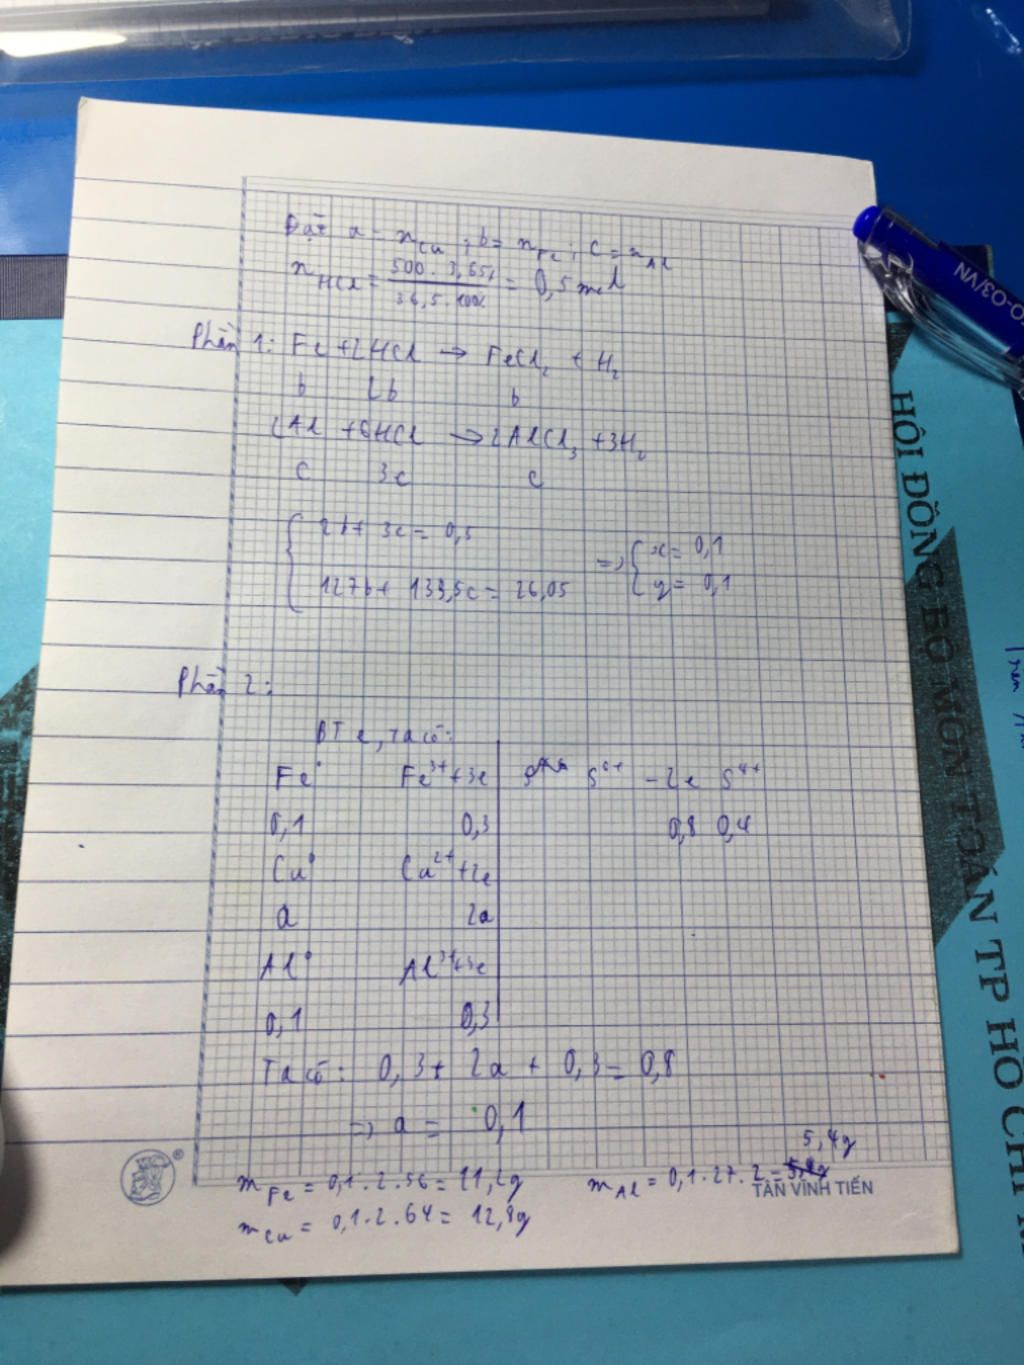 Đặt a = nCu ; b = nFe ; c = nAl
nHCl = 500 . 3,65% / 36,5 . 100% = 0,5 mol
Phần 1: Fe + 2HCl → FeCl2 + H2
b 2b b
2Al + 6HCl → 2AlCl3 + 3H2
c 3c c
{ 2b + 3c = 0,5
127b + 133,5c = 26,05
=> { x = 0,1
y = 0,1
Phần 2:
BT e, ta có:
Fe⁰ Fe³⁺ + 3e S⁶⁺ - 2e S⁴⁺
0,1 0,3 0,8 0,4
Cu⁰ Cu²⁺ + 2e
a 2a
Al⁰ Al³⁺ + 3e
0,1 0,3
Ta có: 0,3 + 2a + 0,3 = 0,8
=> a = 0,1
mFe = 0,1 . 2 . 56 = 11,2g
mAl = 0,1 . 27 . 2 = 5,4g
mCu = 0,1 . 2 . 64 = 12,8g
®
TÂN VĨNH TIẾN
O-03/VN
HỘI ĐỒNG BỘ MÔN TOÁN TP HỒ CHÍ